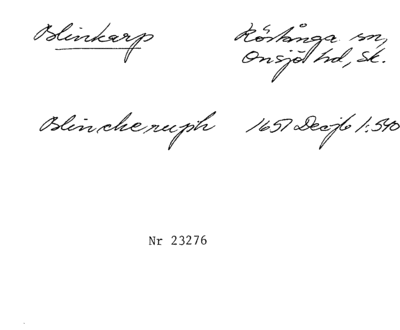 Blinkarp Röstånga sn,
Onsjö hd, Sk.
Blincheruph 1651 Decjb 1:540
Nr 23276